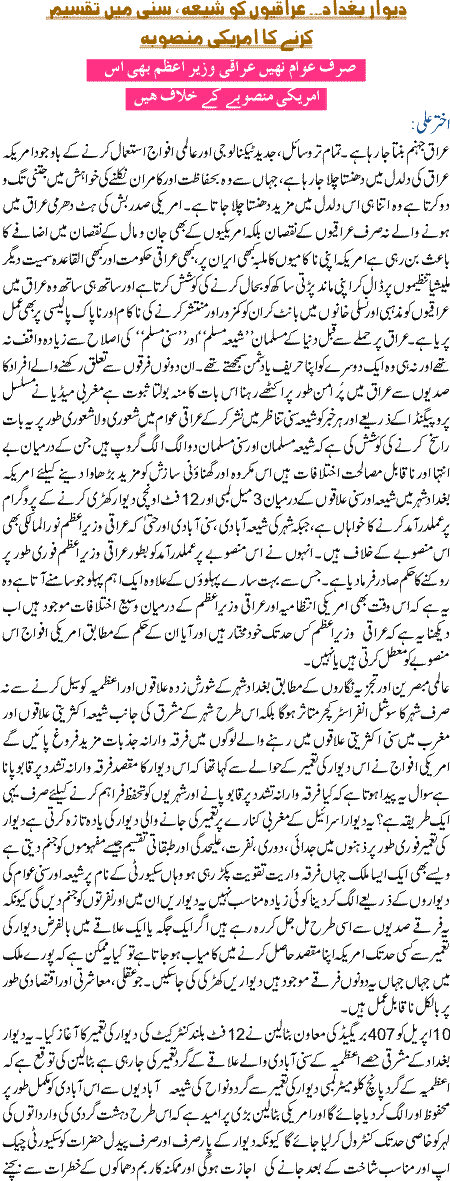 دیوار بغداد... عراقیوں کو شیعہ، سنی میں تقسیم
کرنے کا امریکی منصوبہ
صرف عوام نھیں عراقی وزیر اعظم بھی اس
امریکی منصوبے کے خلاف ھیں
اختر علی:
عراق جہنم بنتا جا رہا ہے۔ تمام تر وسائل، جدید ٹیکنالوجی اور عالمی افواج استعمال کرنے کے باوجود امریکہ
عراق کی دلدل میں دھنستا چلا جا رہا ہے، جہاں سے وہ بحفاظت اور کامران نکلنے کی خواہش میں جتنی تگ و
دو کرتا ہے وہ اتنا ہی اس دلدل میں مزید دھنستا چلا جاتا ہے۔ امریکی صدر بش کی ہٹ دھرمی عراق میں
ہونے والے نہ صرف عراقیوں کے نقصان بلکہ امریکیوں کے بھی جان و مال کے نقصان میں اضافے کا
باعث بن رہی ہے امریکہ اپنی ناکامیوں کا ملبہ بھی ایران پر، کبھی عراقی حکومت اور کبھی القاعدہ سمیت دیگر
ملیشیا تنظیموں پر ڈال کر اپنی ماند پڑتی ساکھ کو بحال کرنے کی کوشش کرتا ہے اور ساتھ ہی ساتھ وہ عراق میں
عراقیوں کو مذہبی اور نسلی خانوں میں بانٹ کر ان کو کمزور اور منتشر کرنے کی ناکام اور ناپاک پالیسی پر بھی عمل
پرا ہے۔ عراق پر حملے سے قبل دنیا کے مسلمان ’’شیعہ مسلم‘‘ اور ’’سنی مسلم‘‘ کی اصلاح سے زیادہ واقف نہ
تھے اور نہ ہی وہ ایک دوسرے کو اپنا حریف یا دشمن سمجھتے تھے۔ ان دونوں فرقوں سے تعلق رکھنے والے افراد کا
صدیوں سے عراق میں پُر امن طور پر اکٹھے رہنا اس بات کا منہ بولتا ثبوت ہے مغربی میڈیا نے مسلسل
پروپیگنڈا کے ذریعے اور ہر خبر کو شیعہ سنی تناظر میں نشر کر کے عراقی عوام میں شعوری ولا شعوری طور پر یہ بات
راسخ کرنے کی کوشش کی ہے کہ شیعہ مسلمان اور سنی مسلمان دو الگ الگ گروپ ہیں جن کے درمیان بے
انتہا اور ناقابل مصالحت اختلافات ہیں اس مکروہ اور گھناؤنی سازش کو مزید بڑھاوا دینے کیلئے امریکہ
بغداد شہر میں شیعہ اور سنی علاقوں کے درمیان 3 میل لمبی اور 12 فٹ اونچی دیوار کھڑی کرنے کے پروگرام
پر عملدرآمد کرنے کا خواہاں ہے، جبکہ شہر کی شیعہ آبادی، سنی آبادی اور حتیٰ کہ عراقی وزیر اعظم نور المالکی بھی
اس منصوبے کے خلاف ہیں۔ انہوں نے اس منصوبے پر عملدرآمد کو بطور عراقی وزیر اعظم فوری طور پر
روکنے کا حکم صادر فرما دیا ہے۔ جس سے بہت سارے پہلوؤں کے علاوہ ایک اہم پہلو جو سامنے آتا ہے وہ
یہ ہے کہ اس وقت بھی امریکی انتظامیہ اور عراقی وزیر اعظم کے درمیان وسیع اختلافات موجود ہیں اب
دیکھنا یہ ہے کہ عراقی وزیر اعظم کس حد تک خود مختار ہیں اور آیا ان کے حکم کے مطابق امریکی افواج اس
منصوبے کو معطل کرتی ہیں یا نہیں۔
عالمی مبصرین اور تجزیہ نگاروں کے مطابق بغداد شہر کے شورش زدہ علاقوں اور اعظمیہ کو سیل کرنے سے نہ
صرف شہر کا سوشل انفراسٹرکچر متاثر ہوگا بلکہ اس طرح شہر کے مشرق کی جانب شیعہ اکثریتی علاقوں اور
مغرب میں سنی اکثریتی علاقوں میں رہنے والے لوگوں میں فرقہ وارانہ جذبات مزید فروغ پائیں گے
امریکی افواج نے اس دیوار کی تعمیر کے حوالے سے کہا تھا کہ اس دیوار کا مقصد فرقہ وارانہ تشدد پر قابو پانا
ہے سوال یہ پیدا ہوتا ہے کہ کیا فرقہ وارانہ تشدد پر قابو پانے اور شہریوں کو تحفظ فراہم کرنے کیلئے صرف یہی
ایک طریقہ ہے؟ یہ دیوار اسرائیل کے مغربی کنارے پر تعمیر کی جانے والی دیوار کی یاد تازہ کرتی ہے دیوار
کی تعمیر فوری طور پر ذہنوں میں جدائی، دوری، نفرت، علیحدگی اور طبقاتی تقسیم جیسے مفہوموں کو جنم دیتی ہے
ویسے بھی ایک ایسا ملک جہاں فرقہ واریت تقویت پکڑ رہی ہو وہاں سکیورٹی کے نام پر شیعہ اور سنی عوام کی
دیواروں کے ذریعے الگ کر دینا کوئی زیادہ مناسب نہیں یہ دیواریں ان میں اور نفرتوں کو جنم دیں گی کیونکہ
یہ فرقے صدیوں سے اسی طرح مل جل کر رہ رہے ہیں اگر ایک جگہ یا ایک علاقے میں بالفرض دیوار کی
تعمیر سے کسی حد تک امریکہ اپنا مقصد حاصل کرنے میں کامیاب ہو جاتا ہے تو کیا یہ ممکن ہے کہ پورے ملک
میں جہاں جہاں یہ دونوں فرقے موجود ہیں دیواریں کھڑی کی جا سکیں۔ جو عقلی، معاشرتی اور اقتصادی طور
پر بالکل ناقابل عمل ہیں۔
10 اپریل کو 407 بریگیڈ کی معاون بٹالین نے 12 فٹ بلند کنکریٹ کی دیوار کی تعمیر کا آغاز کیا۔ یہ دیوار
بغداد کے مشرقی حصے اعظمیہ کے سنی آبادی والے علاقے کے گرد تعمیر کی جا رہی ہے بٹالین کی توقع ہے کہ
اعظمیہ کے گرد پانچ کلومیٹر لمبی دیوار کی تعمیر سے گردونواح کی شیعہ آبادیوں سے اس آبادی کو مکمل طور پر
محفوظ اور الگ کر دیا جائے گا اور امریکی بٹالین بڑی پر امید ہے کہ اس طرح دہشت گردی کی وارداتوں کی
لہر کو خاصی حد تک کنٹرول کر لیا جائے گا کیونکہ دیوار کے پار صرف اور صرف پیدل حضرات کو سکیورٹی چیک
اپ اور مناسب شناخت کے بعد جانے کی اجازت ہوگی اور ممکنہ کار بم دھماکوں کے خطرات سے بچنے